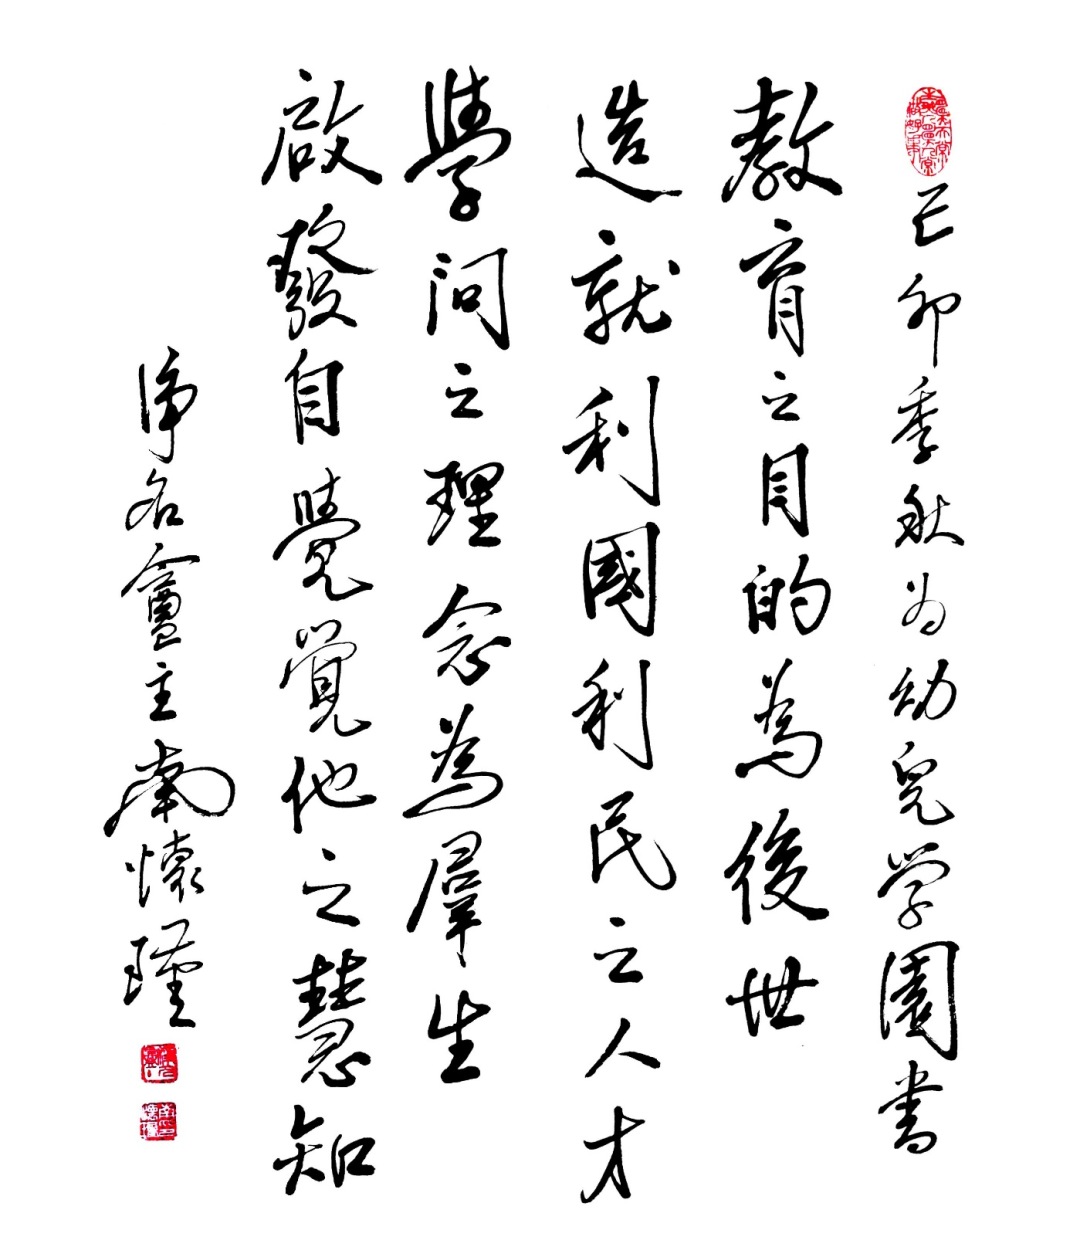 己卯季秋为幼兒学園書
教育之目的為後世
造就利國利民之人才
學問之理念為羣生
啟發自覺覺他之慧知
净名盦主南懷瑾